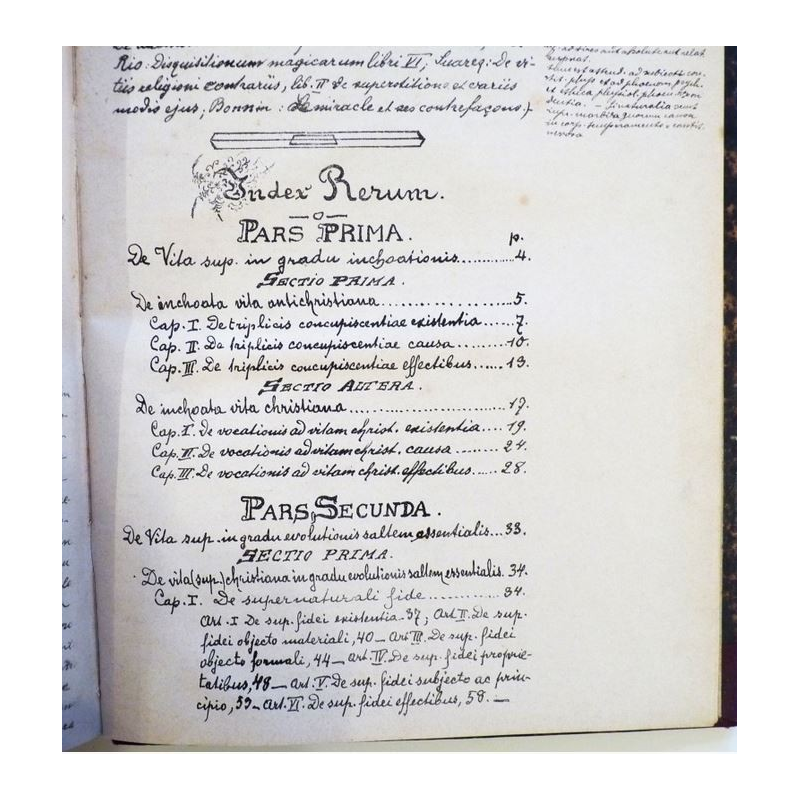 Rio: Disquisitionum magicarum libri VI; Suarez: De vi-
tiis religioni contrariis, lib. II de superstitione et variis
modis ejus; Bonnin: Le miracle et ses contrefaçons.)
Index Rerum.
PARS PRIMA.
p.
De Vita sup. in gradu inchoationis............4.
SECTIO PRIMA.
De inchoata vita antichristiana...................5.
Cap. I. De triplicis concupiscentiae existentia......7.
Cap. II: De triplicis concupiscentiae causa.......10.
Cap. III. De triplicis concupiscentiae effectibus......13.
SECTIO ALTERA.
De inchoata vita christiana.........................17.
Cap. I. De vocationis ad vitam christ. existentia....19.
Cap. II. De vocationis ad vitam christ. causa.......24.
Cap. III. De vocationis ad vitam christ. effectibus......28.
PARS SECUNDA.
De Vita sup. in gradu evolutionis saltem essentialis...33.
SECTIO PRIMA.
De vita (sup.) christiana in gradu evolutionis saltem essentialis. 34.
Cap. I. De supernaturali fide...........34.
Art. I De sup. fidei existentia 37; Art II. De sup.
fidei objecto materiali, 40 — Art III. De sup. fidei
objecto formali, 44 — Art IV. De sup. fidei proprie-
tatibus, 48 — Art. V. De sup. fidei subjecto ac prin-
cipio, 53 — Art. VI. De sup. fidei effectibus, 58. —